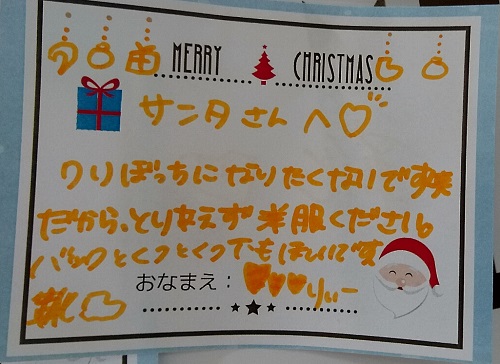 MERRY CHRISTMAS
サンタさんへ♡
クリぼっちになりたくないです笑
だから、とりあえず洋服ください。
バックとくつとくってもほしいです
おなまえ：♥♥♥りぃー